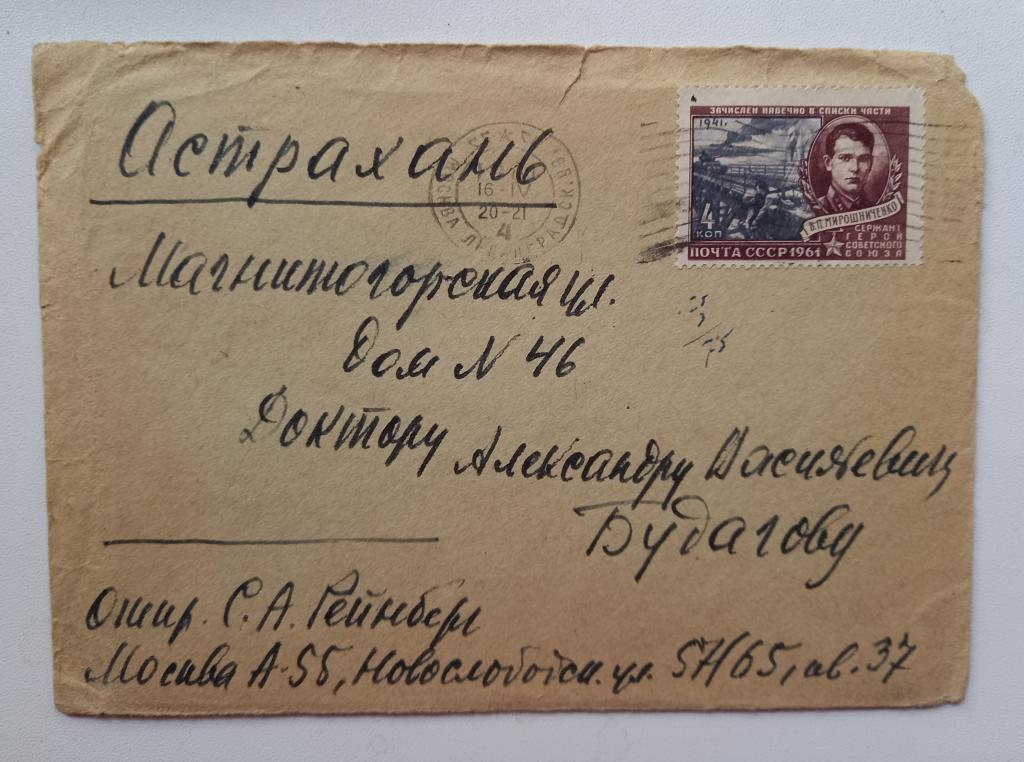 Астрахань
Магнитогорская ул.
Дом N 46
Доктору Александру Васильевич
Будагову
Отпр. С. А. Рейнберг
Москва А-55, Новослободск. ул. 57/65, кв. 37
ЗАЧИСЛЕН НАВЕЧНО В СПИСКИ ЧАСТИ
1941г.
В.П. МИРОШНИЧЕНКО
СЕРЖАНТ
ГЕРОЙ
СОВЕТСКОГО
СОЮЗА
4
КОП
ПОЧТА СССР 1961
МОСКВА ЛЕНИНГРАДСК.
16-IV
20-21
4